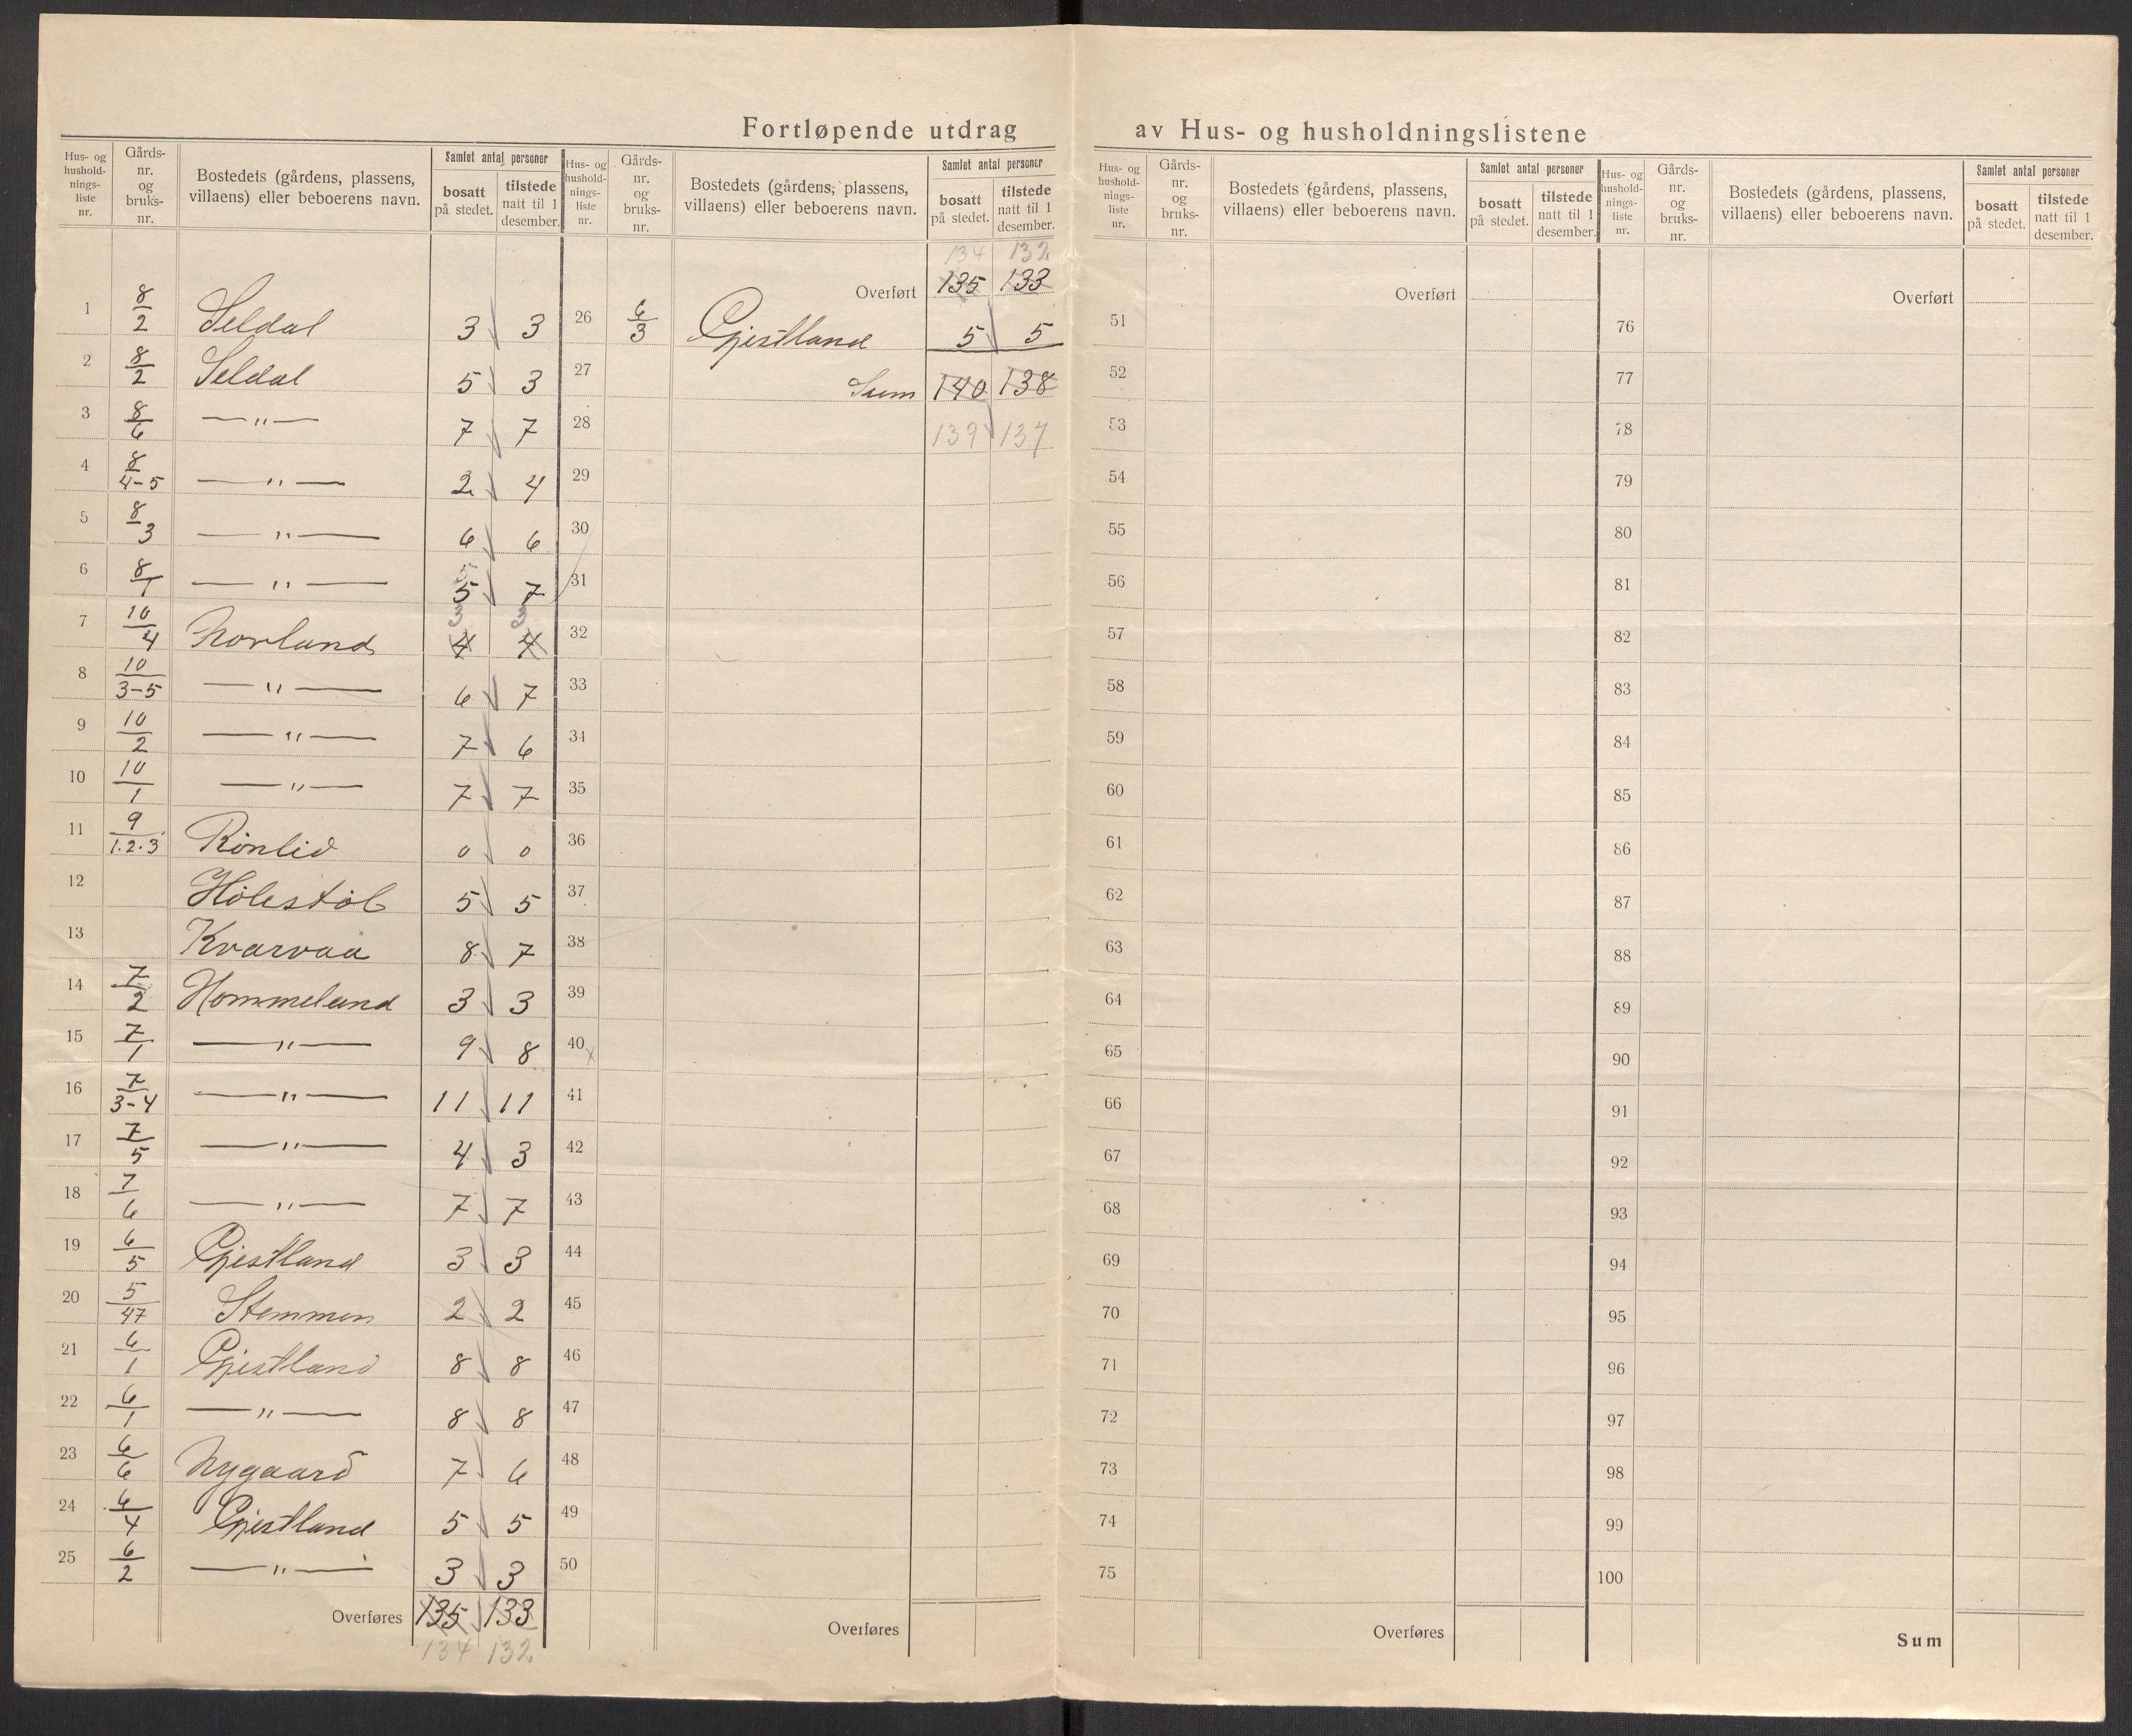 Fortløpende utdrag av Hus- og husholdningslistene
Hus- og hushold-nings-liste nr. | Gårds-nr. og bruks-nr. | Bostedets (gårdens, plassens, villaens) eller beboerens navn. | Samlet antal personer | bosatt på stedet. | tilstede natt til 1 desember.
1 | 8/2 | Seldal | 3 | 3
2 | 8/2 | Seldal | 5 | 3
3 | 8/6 | —"— | 7 | 7
4 | 8/4-5 | —"— | 2 | 4
5 | 8/3 | —"— | 6 | 6
6 | 8/1 | —"— | 5 | 7
7 | 10/4 | Norland | 4 | 4
8 | 10/3-5 | —"— | 6 | 7
9 | 10/2 | —"— | 7 | 6
10 | 10/1 | —"— | 7 | 7
11 | 9/1.2.3 | Rönlid | 0 | 0
12 | Hölestöl | 5 | 5
13 | Kvarvaa | 8 | 7
14 | 7/2 | Hommeland | 3 | 3
15 | 7/1 | —"— | 9 | 8
16 | 7/3-4 | —"— | 11 | 11
17 | 7/5 | —"— | 4 | 3
18 | 7/6 | —"— | 7 | 7
19 | 6/5 | Gjestland | 3 | 3
20 | 5/47 | Stemmen | 2 | 2
21 | 6/1 | Gjestland | 8 | 8
22 | 6/1 | —"— | 8 | 8
23 | 6/6 | Nygaard | 7 | 6
24 | 6/4 | Gjestland | 5 | 5
25 | 6/2 | —"— | 3 | 3
Overføres | 135 | 133
134 | 132
Hus- og hushold-nings-liste nr. | Gårds-nr. og bruks-nr. | Bostedets (gårdens, plassens, villaens) eller beboerens navn. | Samlet antal personer | bosatt på stedet. | tilstede natt til 1 desember.
134 | 132
Overført | 135 | 133
26 | 6/3 | Gjestland | 5 | 5
27 | Sum | 140 | 138
28 | 139 | 137
29
30
31
32
33
34
35
36
37
38
39
40
41
42
43
44
45
46
47
48
49
50
Overføres
Hus- og hushold-nings-liste nr. | Gårds-nr. og bruks-nr. | Bostedets (gårdens, plassens, villaens) eller beboerens navn. | Samlet antal personer | bosatt på stedet. | tilstede natt til 1 desember.
Overført
51
52
53
54
55
56
57
58
59
60
61
62
63
64
65
66
67
68
69
70
71
72
73
74
75
Overføres
Hus- og hushold-nings-liste nr. | Gårds-nr. og bruks-nr. | Bostedets (gårdens, plassens, villaens) eller beboerens navn. | Samlet antal personer | bosatt på stedet. | tilstede natt til 1 desember.
Overført
76
77
78
79
80
81
82
83
84
85
86
87
88
89
90
91
92
93
94
95
96
97
98
99
100
Sum